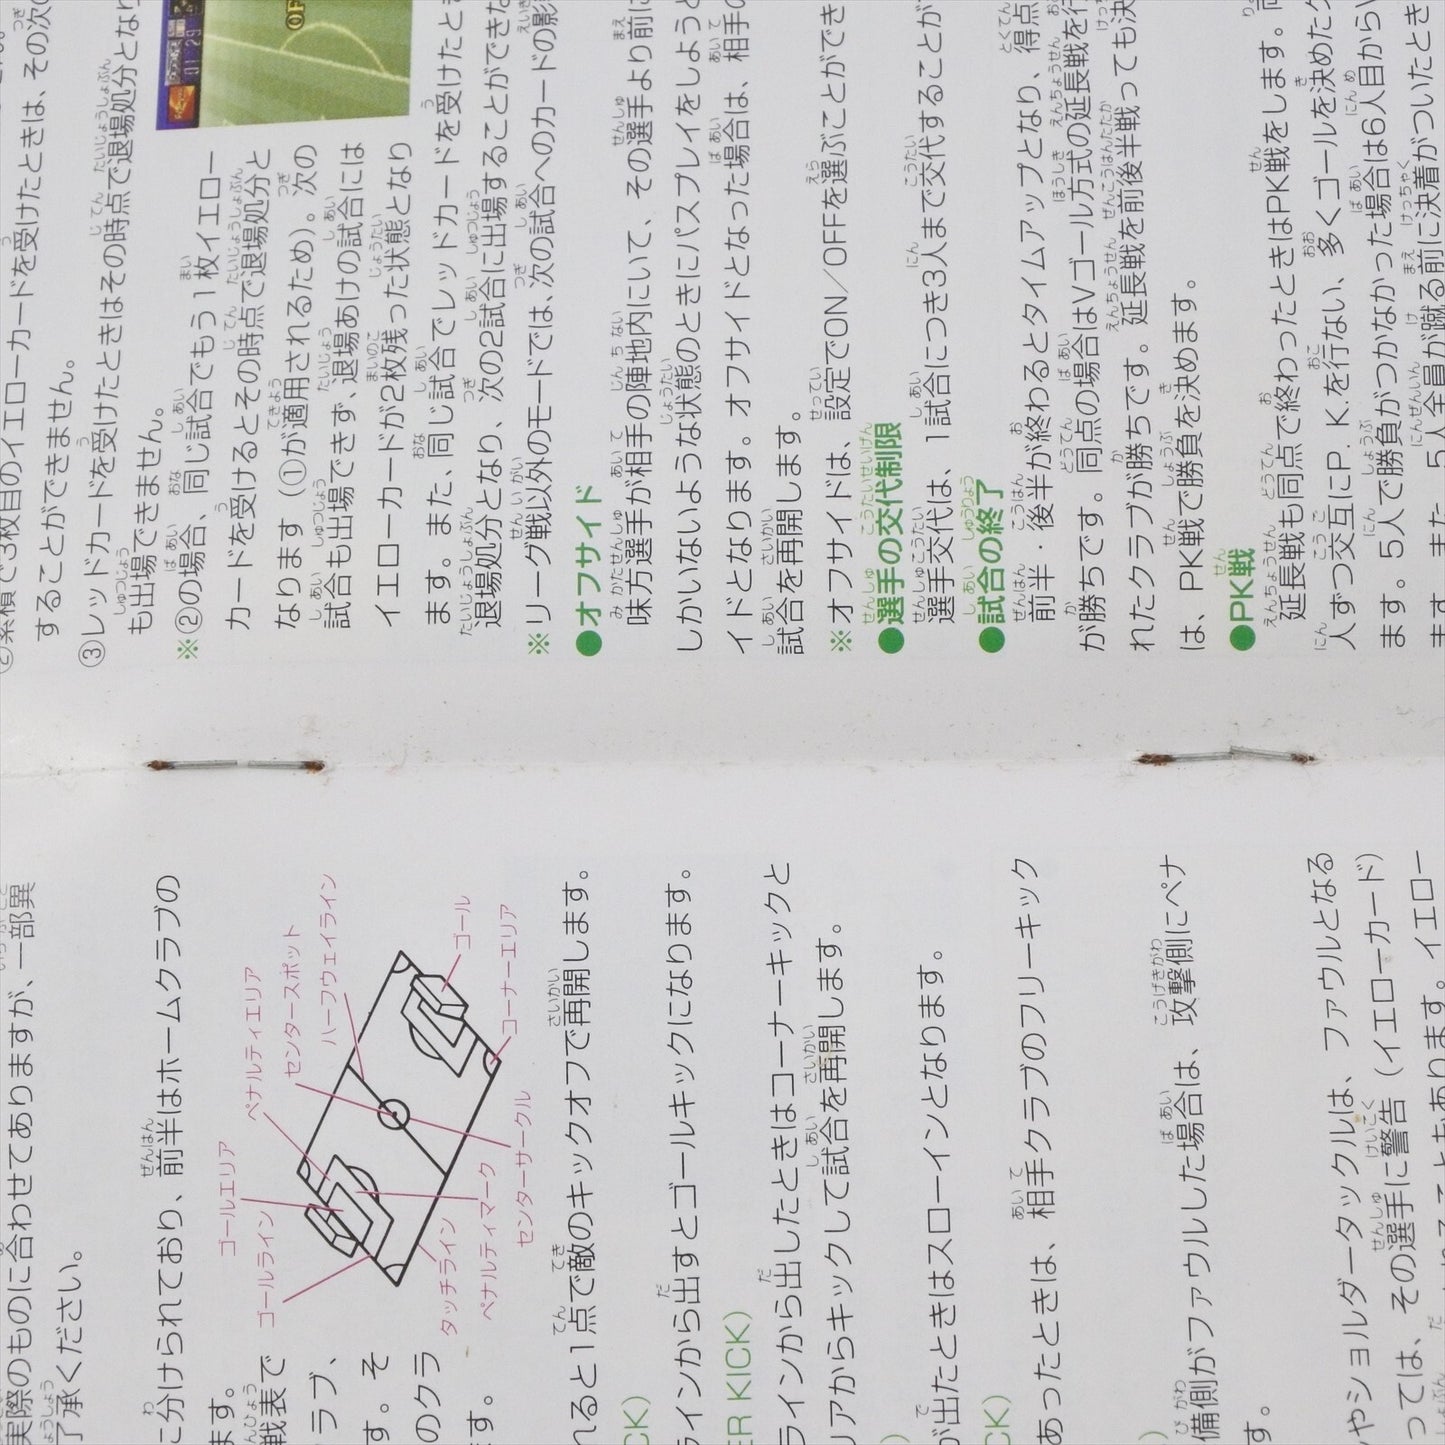 実際のものに合わせてありますが、一部異
了承ください。
に分けられており、前半はホームクラブの
ます。
戦表で
ラブ、
す。そ
のクラ
ます。
ゴールエリア
ペナルティエリア
センタースポット
ハーフウェイライン
ゴールライン
ゴール
コーナーエリア
タッチライン
ペナルティマーク
センターサークル
れると1点で敵のキックオフで再開します。
CK)
ラインから出すとゴールキックになります。
ER KICK)
ラインから出したときはコーナーキックと
リアからキックして試合を再開します。
)
が出たときはスローインとなります。
CK)
あったときは、相手クラブのフリーキック
)
備側がファウルした場合は、攻撃側にペナ
す。
やショルダータックルは、ファウルとなる
っては、その選手に警告(イエローカード)
こともあります。イエロー
②累積で3枚目のイエローカードを受けたときは、その次の
することができません。
③レッドカードを受けたときはその時点で退場処分となり
も出場できません。
※②の場合、同じ試合でもう1枚イエロー
カードを受けるとその時点で退場処分と
なります(①が適用されるため)。次の
試合も出場できず、退場あけの試合には
イエローカードが2枚残った状態となり
ます。また、同じ試合でレッドカードを受けたとき
退場処分となり、次の2試合に出場することができな
※リーグ戦以外のモードでは、次の試合へのカードの影
01'29
OF
●オフサイド
味方選手が相手の陣地内にいて、その選手より前に
しかいないような状態のときにパスプレイをしようと
イドとなります。オフサイドとなった場合は、相手の
試合を再開します。
※オフサイドは、設定でON／OFFを選ぶことができ
●選手の交代制限
選手交代は、1試合につき3人まで交代することが
●試合の終了
前半・後半が終わるとタイムアップとなり、得点
が勝ちです。同点の場合はVゴール方式の延長戦を行
れたクラブが勝ちです。延長戦を前後半戦っても決
は、PK戦で勝負を決めます。
●PK戦
延長戦も同点で終わったときはPK戦をします。両
人ずつ交互にP.K.を行ない、多くゴールを決めたク
ます。5人で勝負がつかなかった場合は6人目から
ます。また、5人全員が蹴る前に決着がついたとき